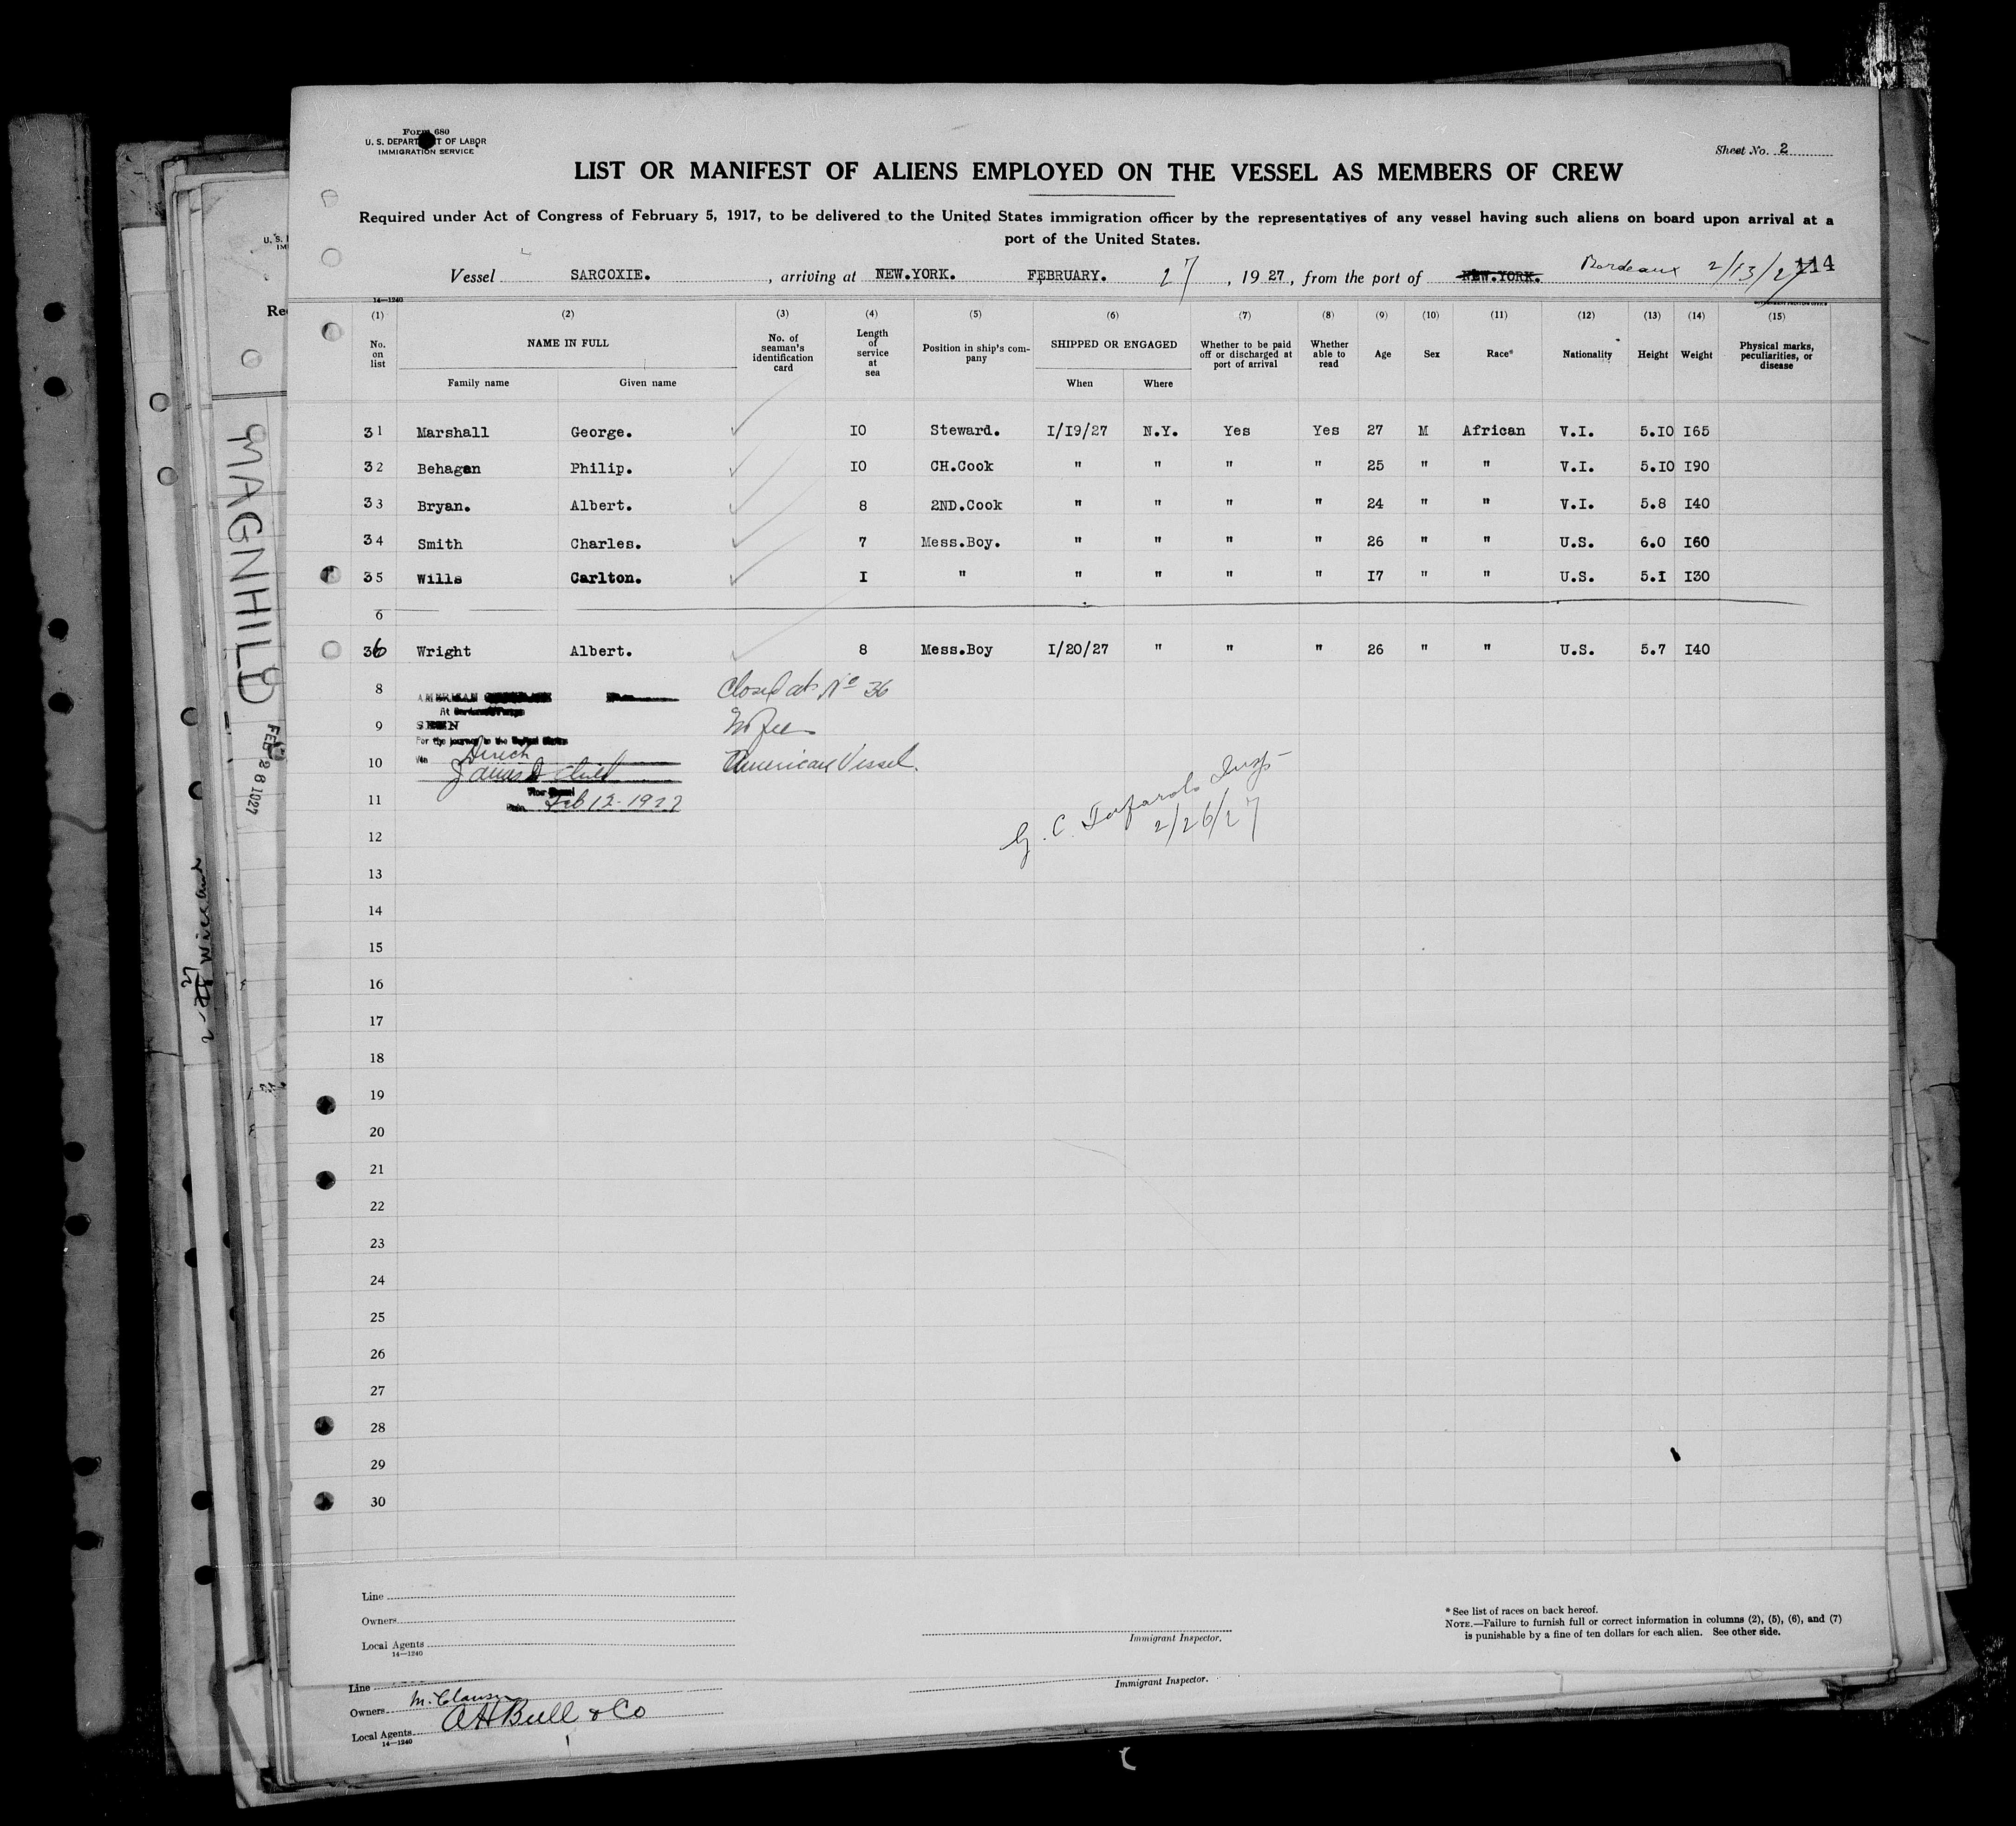 Form 680
U. S. DEPARTMENT OF LABOR
IMMIGRATION SERVICE
Sheet No. 2
LIST OR MANIFEST OF ALIENS EMPLOYED ON THE VESSEL AS MEMBERS OF CREW
Required under Act of Congress of February 5, 1917, to be delivered to the United States immigration officer by the representatives of any vessel having such aliens on board upon arrival at a
port of the United States.
Vessel SARCOXIE. , arriving at NEW.YORK. FEBRUARY. 27 , 1927, from the port of NEW.YORK. Bordeaux 2/13/27 114
14—1240
(1) (2) (3) (4) (5) (6) (7) (8) (9) (10) (11) (12) (13) (14) (15)
No. on list NAME IN FULL No. of seaman's identification card Length of service at sea Position in ship's company SHIPPED OR ENGAGED Whether to be paid off or discharged at port of arrival Whether able to read Age Sex Race* Nationality Height Weight Physical marks, peculiarities, or disease
Family name Given name When Where
31 Marshall George. 10 Steward. 1/19/27 N.Y. Yes Yes 27 M African V.I. 5.10 165
32 Behagan Philip. 10 CH.Cook " " " " 25 " " V.I. 5.10 190
33 Bryan. Albert. 8 2ND.Cook " " " " 24 " " V.I. 5.8 140
34 Smith Charles. 7 Mess.Boy. " " " " 26 " " U.S. 6.0 160
35 Wills Carlton. 1 " " " " " 17 " " U.S. 5.1 130
6
36 Wright Albert. 8 Mess.Boy 1/20/27 " " " 26 " " U.S. 5.7 140
8 AMERICAN Closed at No 36
At
9 SEEN No Fee
For the journey to the United States
10 Via Direct American Vessel.
11 Feb 12-1927
G. C. Insp
2/26/27
12
13
14
15
16
17
18
19
20
21
22
23
24
25
26
27
28
29
30
Line
Owners
Local Agents
14—1240
Immigrant Inspector.
* See list of races on back hereof.
NOTE.—Failure to furnish full or correct information in columns (2), (5), (6), and (7)
is punishable by a fine of ten dollars for each alien. See other side.
Line
Owners
Local Agents A H Bull & Co
14—1240
Immigrant Inspector.
MAGNHILD
FEB 28 1927